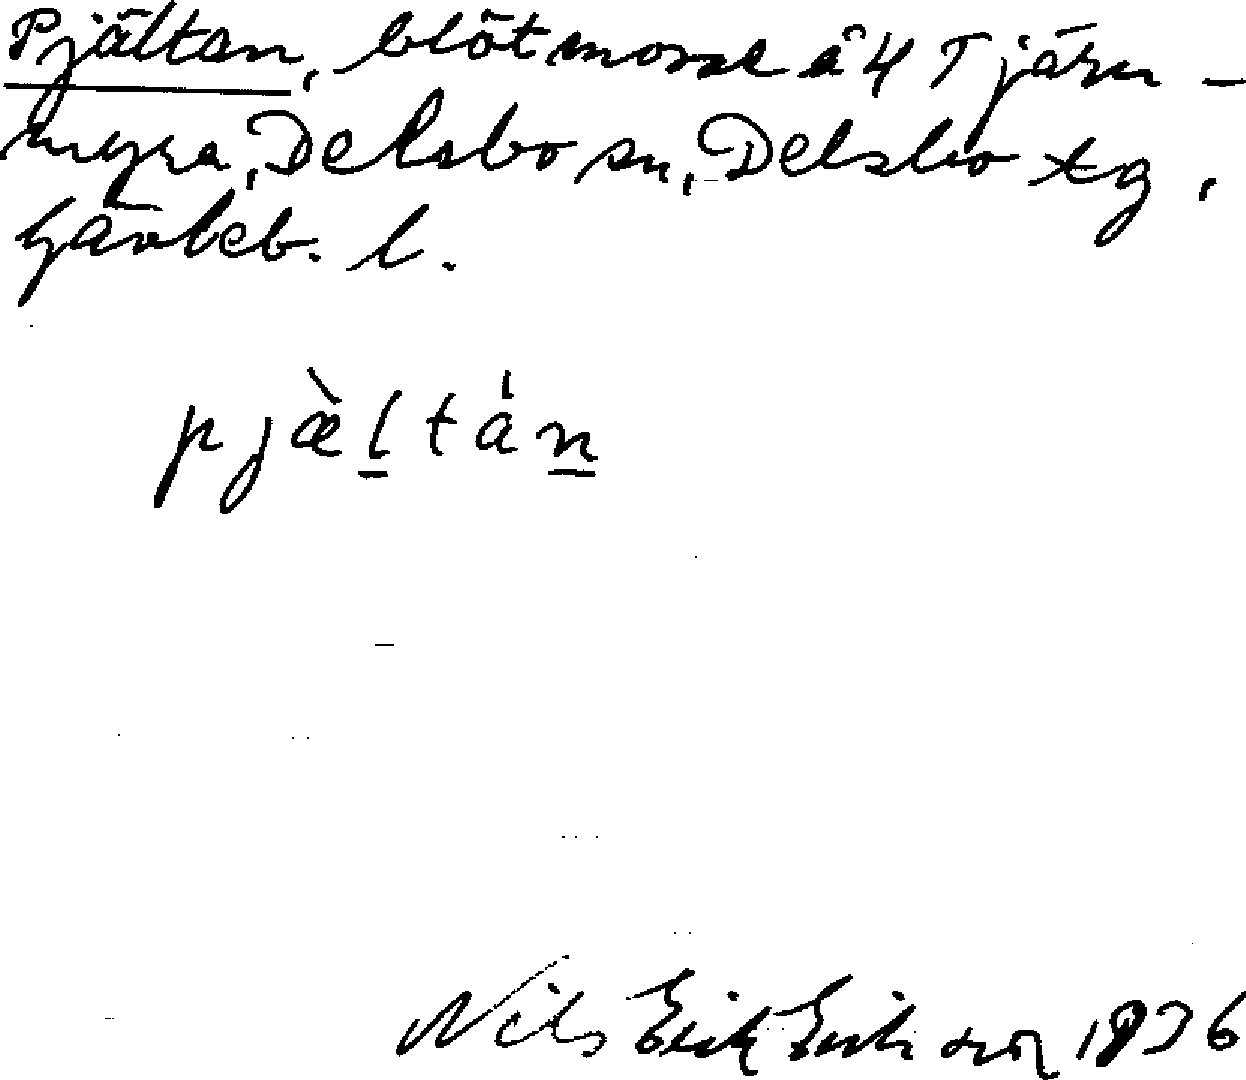 Pjältan, blötmosse å 4 Tjärn-
myra, Delsbo sn, Delsbo tg,
Gävleb. l.
pjæ̀l̲tán̲
Nils Erik Eriksson 1936